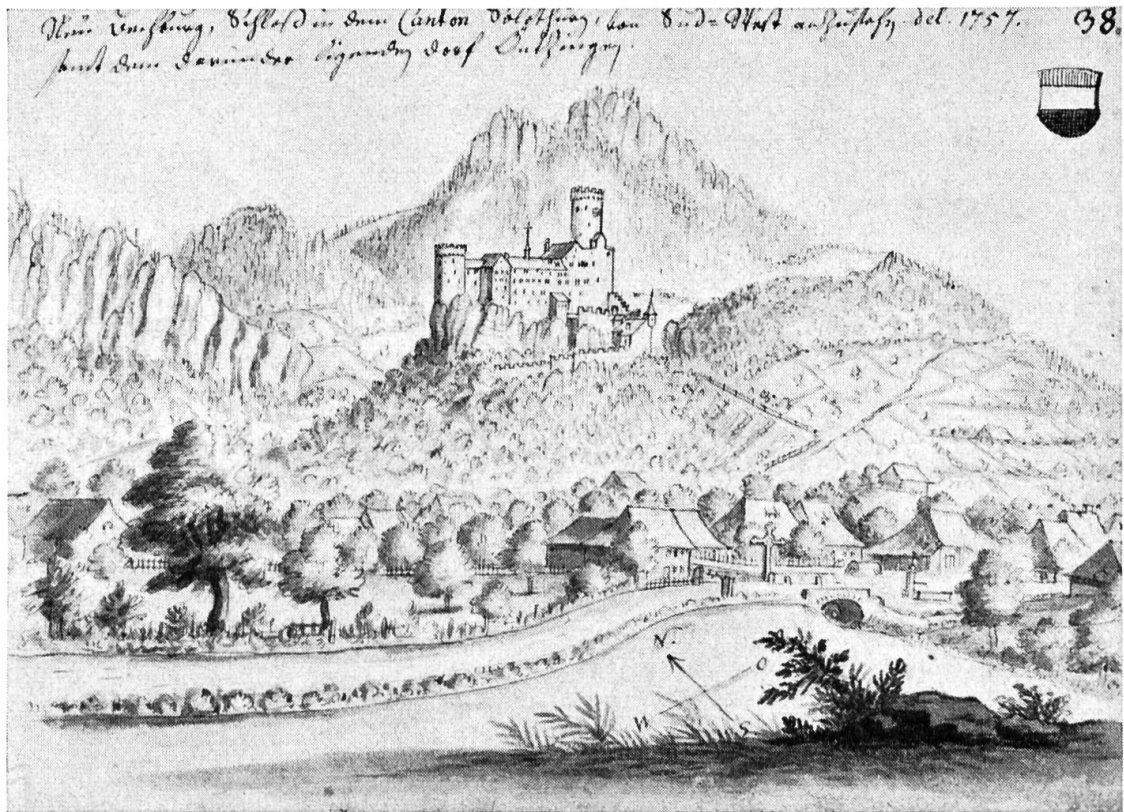 Neu Bechburg, Schloß in dem Canton Solothurn, von Süd-West anzusehen del. 1757. 38.
samt dem darunder ligenden dorf Önsingen.
N.
O
W
S